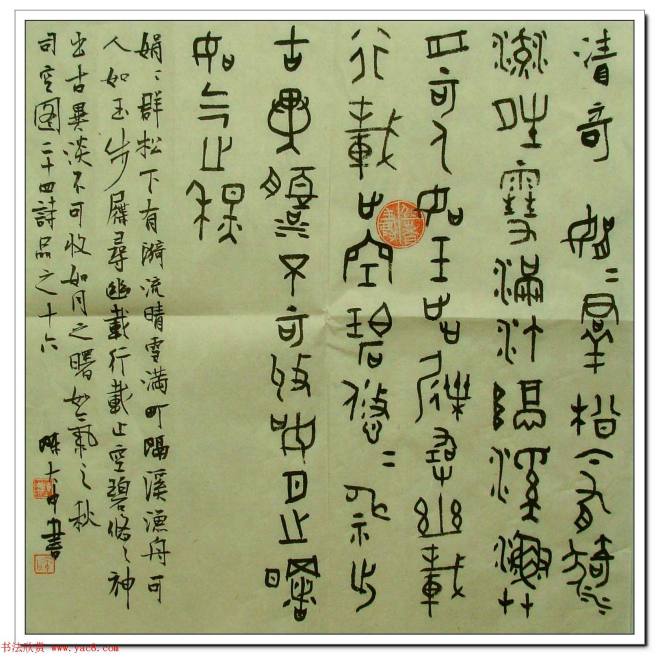 清奇 娟〻群松下有漪
流晴雪滿汀隔溪漁
舟可人如玉步屧尋幽載
行載止空碧悠〻神出
古異淡不可收如月之曙
如气之秋
娟〻群松下有漪流晴雪滿汀隔溪漁舟可
人如玉步屧尋幽載行載止空碧悠〻神
出古異淡不可收如月之曙如氣之秋
司空图二十四詩品之十六 書
书法欣赏 www.yac8.com